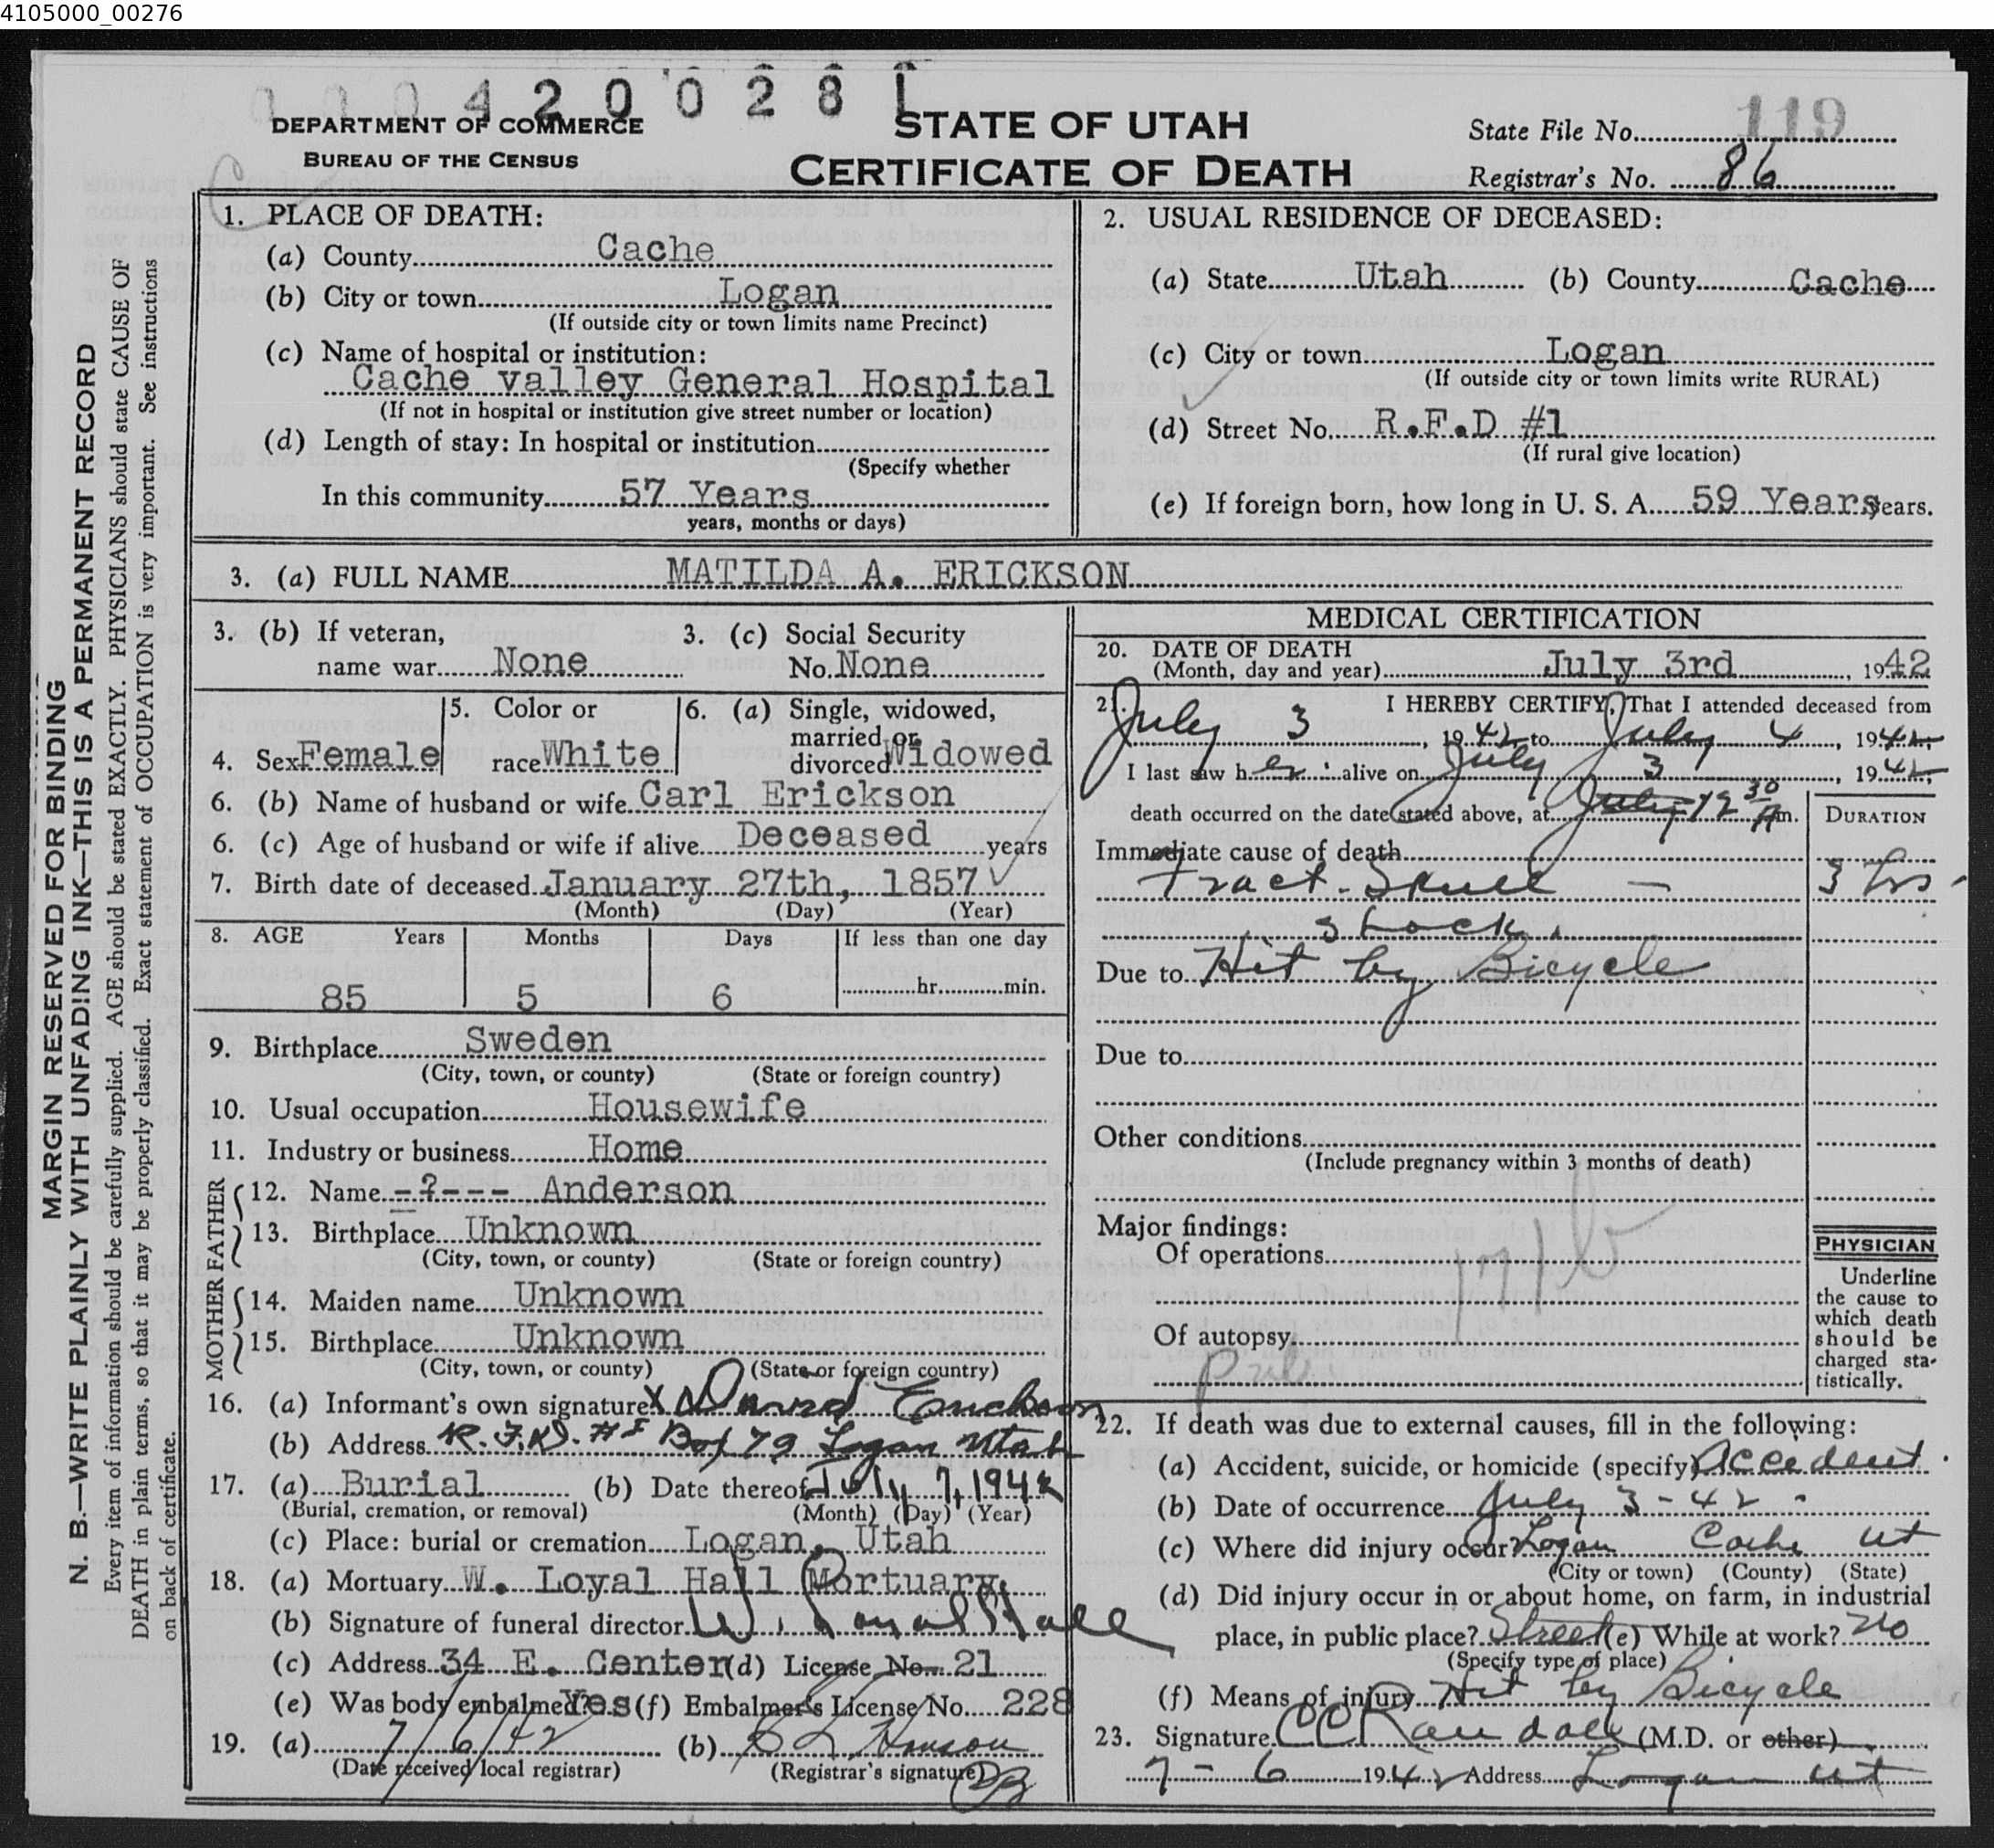 4105000_00276
0 0 0 4 2 0 0 2 8 1
DEPARTMENT OF COMMERCE
BUREAU OF THE CENSUS
STATE OF UTAH
CERTIFICATE OF DEATH
State File No. 119
Registrar's No. 86
MARGIN RESERVED FOR BINDING
N. B.—WRITE PLAINLY WITH UNFADING INK—THIS IS A PERMANENT RECORD
Every item of information should be carefully supplied. AGE should be stated EXACTLY. PHYSICIANS should state CAUSE OF
DEATH in plain terms, so that it may be properly classified. Exact statement of OCCUPATION is very important. See instructions
on back of certificate.
1. PLACE OF DEATH:
(a) County Cache
(b) City or town Logan
(If outside city or town limits name Precinct)
(c) Name of hospital or institution:
Cache valley General Hospital
(If not in hospital or institution give street number or location)
(d) Length of stay: In hospital or institution
(Specify whether
In this community 57 Years
years, months or days)
2. USUAL RESIDENCE OF DECEASED:
(a) State Utah (b) County Cache
(c) City or town Logan
(If outside city or town limits write RURAL)
(d) Street No. R.F.D #1
(If rural give location)
(e) If foreign born, how long in U. S. A. 59 Years years.
3. (a) FULL NAME MATILDA A. ERICKSON
3. (b) If veteran, name war None
3. (c) Social Security No. None
4. Sex Female
5. Color or race White
6. (a) Single, widowed, married, or divorced Widowed
6. (b) Name of husband or wife Carl Erickson
6. (c) Age of husband or wife if alive Deceased years
7. Birth date of deceased January 27th, 1857
(Month) (Day) (Year)
8. AGE Years Months Days If less than one day
85 5 6 hr. min.
9. Birthplace Sweden
(City, town, or county) (State or foreign country)
10. Usual occupation Housewife
11. Industry or business Home
FATHER
12. Name -?--- Anderson
13. Birthplace Unknown
(City, town, or county) (State or foreign country)
MOTHER
14. Maiden name Unknown
15. Birthplace Unknown
(City, town, or county) (State or foreign country)
16. (a) Informant's own signature X David Erickson
(b) Address R.F.D. #1 Box 79 Logan Utah
17. (a) Burial (b) Date thereof July 7, 1942
(Burial, cremation, or removal) (Month) (Day) (Year)
(c) Place: burial or cremation Logan, Utah
18. (a) Mortuary W. Loyal Hall Mortuary
(b) Signature of funeral director W. Loyal Hall
(c) Address 34 E. Center (d) License No. 21
(e) Was body embalmed? Yes (f) Embalmer's License No. 228
19. (a) 7/6/42 (b) Hanson
(Date received local registrar) (Registrar's signature)
MEDICAL CERTIFICATION
20. DATE OF DEATH
(Month, day and year) July 3rd, 1942
21. I HEREBY CERTIFY, That I attended deceased from
July 3, 1942 to July 4, 1942
I last saw her alive on July 3, 1942
death occurred on the date stated above, at July 12 30 Am.
DURATION
Immediate cause of death
Fract. Skull — 3 hrs.
Shock.
Due to Hit by Bicycle
Due to
Other conditions
(Include pregnancy within 3 months of death)
Major findings:
Of operations
Of autopsy
PHYSICIAN
Underline
the cause to
which death
should be
charged sta-
tistically.
22. If death was due to external causes, fill in the following:
(a) Accident, suicide, or homicide (specify) Accident.
(b) Date of occurrence July 3-42
(c) Where did injury occur? Logan Cache Ut
(City or town) (County) (State)
(d) Did injury occur in or about home, on farm, in industrial
place, in public place? Street (e) While at work? No
(Specify type of place)
(f) Means of injury Hit by Bicycle
23. Signature CC Randall (M.D. or other)
7-6 1942 Address Logan Ut